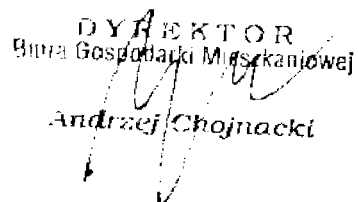 DYREKTOR
Biura Gospodarki Mieszkaniowej
Andrzej Chojnacki